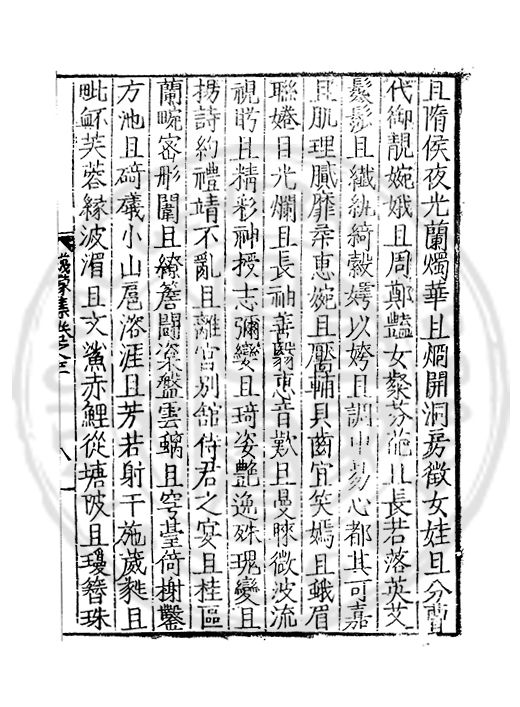 且隋侯夜光蘭燭華且燗開洞房徵女娃且分曹
代御靚婉娥且周鄭豔女粲芬葩且長若落英芟
鬒髮且纖紈綺縠嫮以姱且調中易心都其可嘉
且肌理膩靡柔惠婉且靨輔具齒宜笑嫣且蛾眉
聯娩目光爛且長袖善翳惠音歎且曼睩微波流
視眄且精彩神授志彌變且琦姿艷逸殊瑰變且
揚詩約禮靖不亂且離宮別館侍君之宴且桂區
蘭畹密彤闈且繚簷鬬深盤雲螭且穹臺倚榭鑿
方池且碕礒小山扈溶涯且芳若射干施葳蕤且
毗鉌芙蓉緣波湄且文鯊赤鯉從塘陂且瓊簪珠
集卷之三
八